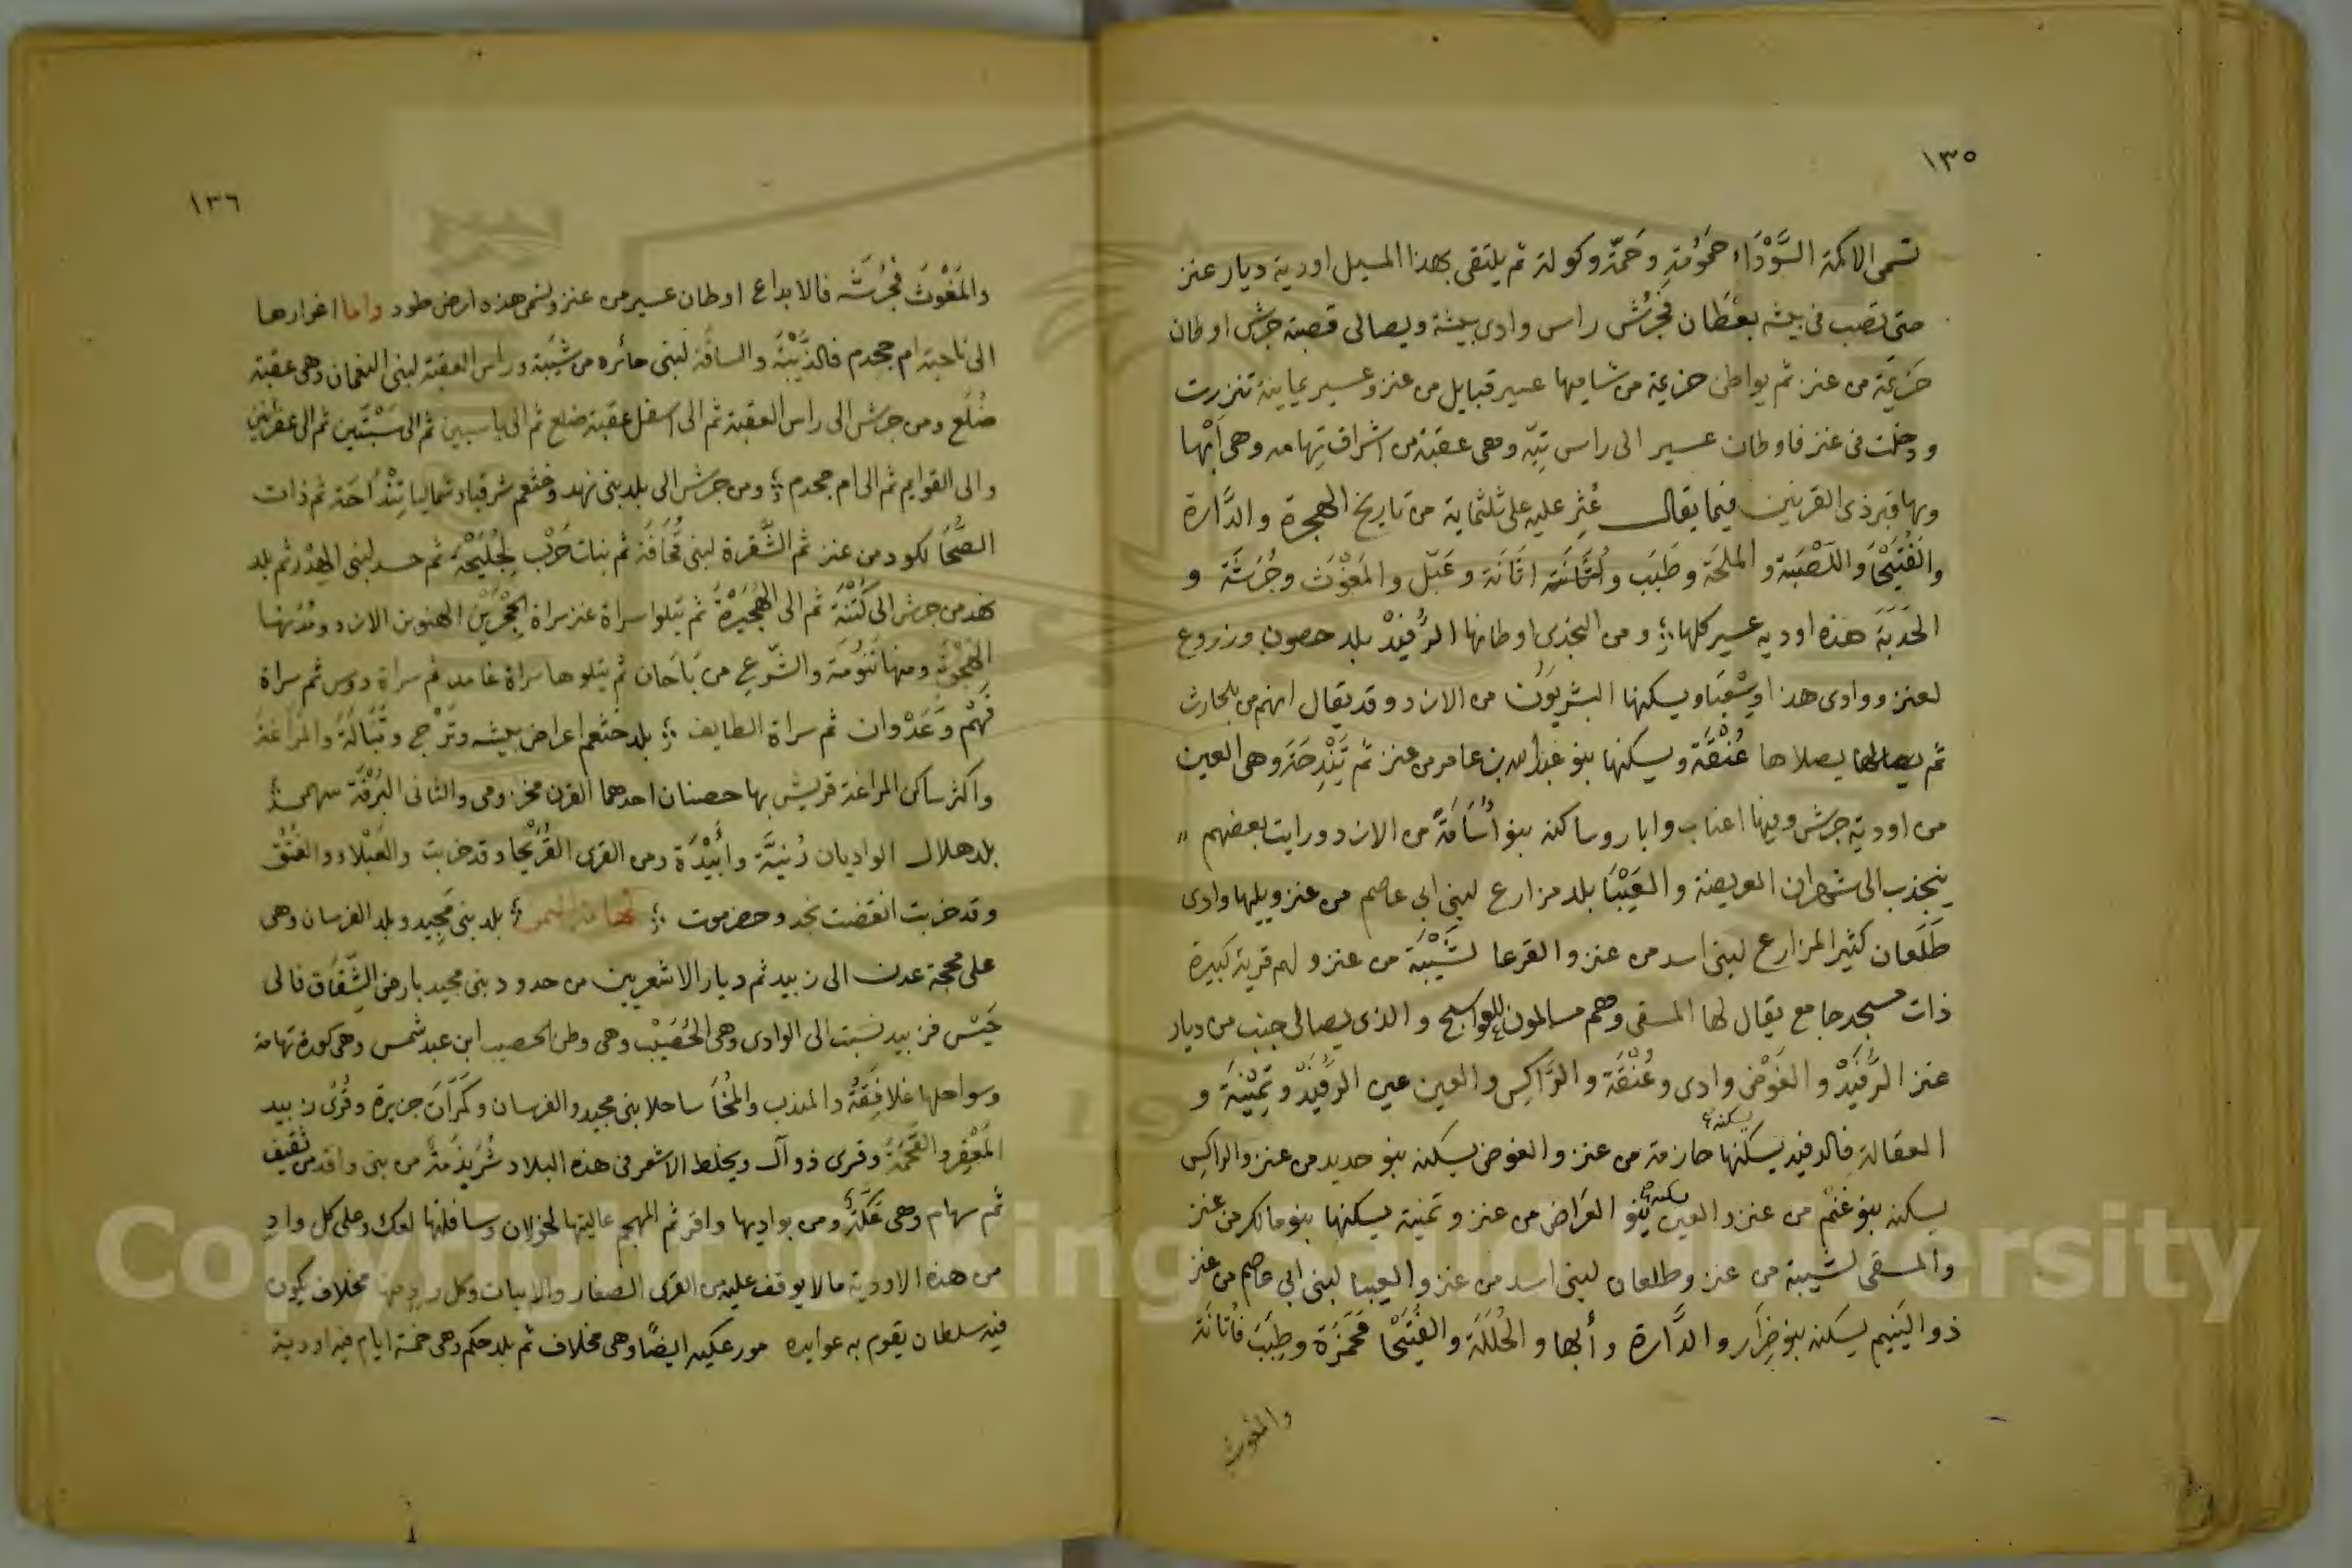 ١٣٥
تسمى الاكمة السَّوْدَاء حَمُومَة وحَمَّة وكولة ثم يلتقى بهذا المسيل اودية ديار عنز
حتى تصب فى بيشه بعْطَان فجُرَش راس وادى بيشة ويصالى قصبة جرش اوطان
حَزِيمَة من عنز ثم يواطن حزيمة من شاميها عسير قبايل من عنز وعسير يمانية تنزرت
ودخلت فى عنز فاوطان عسير الى راس تِيَّه وهى عقبة من اشراف تهامه وهى أَبْها
وبها قبر ذى القرنين فيما يقال عُثِر عليه على ثلثماية من تاريخ الهجرة والدَّارة
والفُتَيْحَا واللَّصَبَة والملحَة وطَبَب و اتَانَة وعَبَل والمَغْوَث وجُرَشَة و
الحَدَبَة هذه اوديه عسير كلها ؛ ومن النجدى اوطانها الرُّفَيْد بلد حصون وزروع
لعنز ووادى هذا ويسكنها البشريون من الازد وقد يقال انهم من بلحارث
ثم يصلاها عُنْقَة ويسكنها بنو عبد الله بن عامر من عنز ثم تَنْدِحَة وهى العين
من اودية جرش وفيها اعناب وابار وساكنه بنو أُسَامَة من الازد ورايت بعضهم
ينجذب الى شهران العريضة والعَيْبَا بلد مزارع لبنى ابى عاصم من عنز ويليها وادى
طَلَعَان كثير المزارع لبنى اسد من عنز والقرعا لشَيْبَة من عنز ولهم قرية كبيرة
ذات مسجد جامع يقال لها المسقى وهم مسالمون للعواسج والذى يصالى جنب من ديار
عنز الرُّفَيْد والغَوْض وادى وعُنْقَة والرَّاكِس والعين عين الرُّفَيْد وتَمْنِيَة و
العقالة فالرفيد يسكنها حازمة من عنز والغوض يسكنه بنو حديد من عنز والراكس
يسكنه بنو غَنْم من عنز والعين يسكنه بنو العَرَاض من عنز وتمنية يسكنها بنو مالك من عنز
والمسقى لشيبة من عنز وطلعان لبنى اسد من عنز والعيبا لبنى ابى عاصم من عنز
ذو اليَنِيم يسكنه بنو ضِرَار والدَّارة وأبها والحُلَلَة والفُتَيْحَا فحَمْرَة وطَبَب فأتَانَة
والمغوث
١٣٦
والمَغْوَث فجُرَشَه فالايداع اوطان عسير من عنز وتسمى هذه ارض طود واما اغرارها
الى ناحية ام جحدم فالذِّيْبَة والساقة لبنى جائره من شَيْبَة وراس العقبة لبنى النعمان وهى عقبة
ضُلَع ومن جرش الى راس العقبة ثم الى اسفل عقبة ضلع ثم الى ثم الى ثم الى
والى القوايم ثم الى ام جحدم ؛ ومن جرش الى بلد بنى نهد وخثعم شرقيا وشماليا تَنْدَاحَة ثم ذات
الصُّحَا لكود من عنز ثم الشَّقرة لبنى قُحَافَة ثم بنات حَرْب لجُلَيْحَة ثم حسد لبنى الهِزْر ثم بلد
نهد من جرش الى كُتْنَة ثم الى الهُجَيْرَة ثم يتلوا سراة عنز سراة الحَجْر بن الهنو بن الازد ومُدُنها
الجَهْوَة ومنها تَنُومَة والشَّرع من بَاحَان ثم يتلوها سراة غامد ثم سراة دوس ثم سراة
فَهْم وَعَدْوان ثم سراة الطايف ؛ بلد خثعم اعراض بيشه وتَرْج وتَبَالَة والمَرَاغَة
واكثر ساكن المراغة قريش بها حصنان احدهما القرن مخزومى والثانى البُرْقَة سهمى
بلد هلال الواديان رُنْيَة وأُبَيْدَة ومن القرى القُرَيْحَا وقد خربت والعَبْلاء والفُتُق
وقد خربت انقضت نجد وحضرموت ؛ تهامة اليمن ؛ بلد بنى مَجِيد وبلد الفرسان وهى
على محجة عدن الى زبيد ثم ديار الاشعريين من حدود بنى مجيد بارض الشِّقَاق فالى
حَيْس فزبيد نسبت الى الوادى وهى الحُصَيْب وهى وطن الحصيب ابن عبد شمس وهى كورة تهامة
وسواحلها غَلَافِقَة والمندب والمُخَا ساحلا بنى مجيد والفرسان وكَمَرَانَ جزيرة وقُرَى زبيد
المَعْقِر والقَحْمَة وقرى ذوآل ويخلط الاشعر فى هذه البلاد شُرَيْذِمَة من بنى واقد من ثقيف
ثم سهام وهى عَكِّيَّة ومن بواديها واقر ثم المهجم عاليتها لخولان وسافلتها لعك وعلى كل وادٍ
من هذه الاودية ما لا يوقف عليه من القرى الصغار والابيات وكل وادٍ منها مخلاف يكون
فيه سلطان يقوم به عوايده مور عكيه ايضًا وهى مخلاف ثم بلد حكم وهى خمسة ايام فيه اودية
Copyright © King Saud University